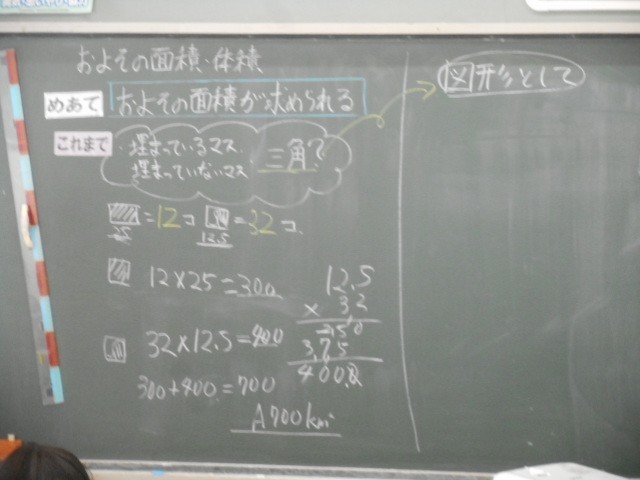 およその面積・体積
めあて およその面積が求められる
これまで ・埋まっているマス
埋まっていないマス 三角?
=12コ =32コ
25 12.5
12×25=300
32×12.5=400
300+400=700
A700km²
12.5
×32
250
375
400.0
図形として